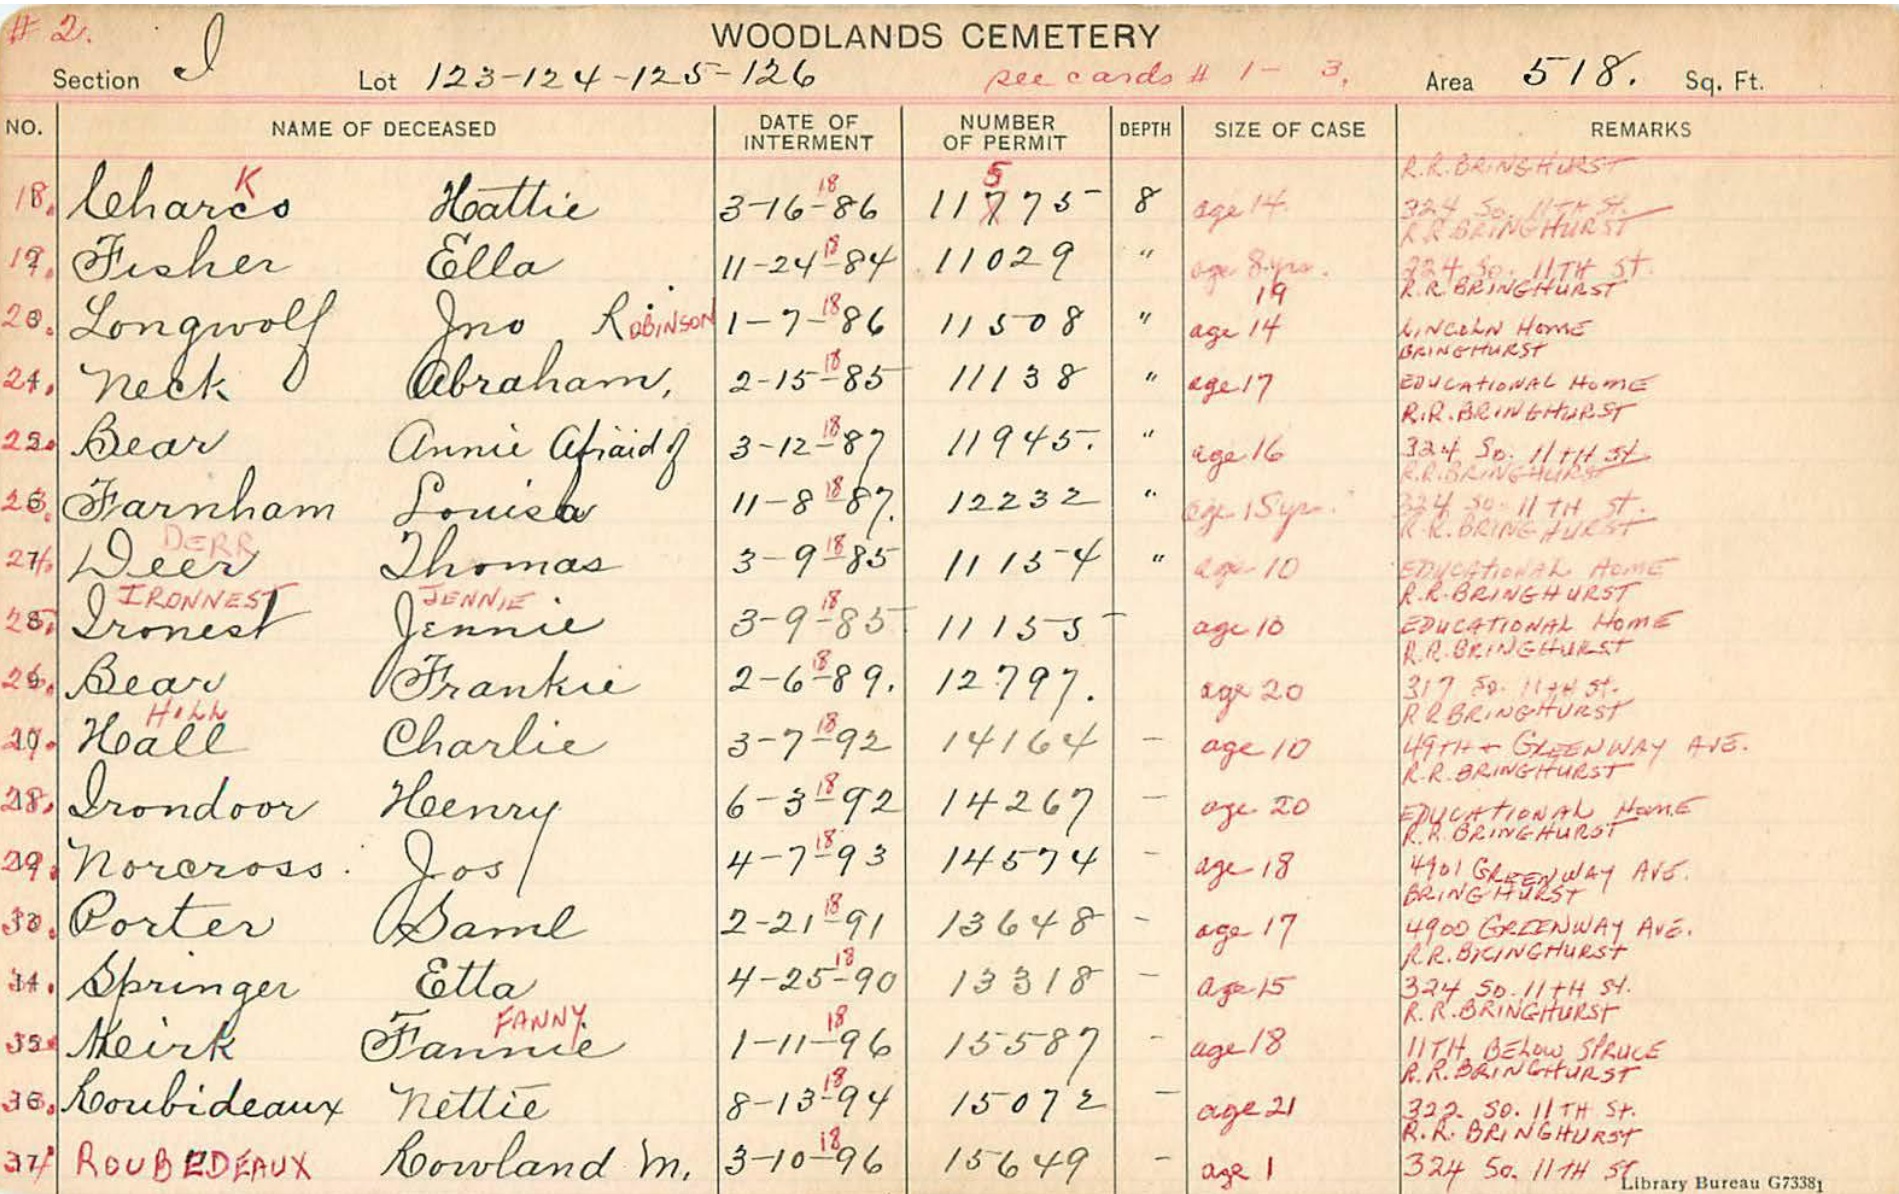 # 2.
WOODLANDS CEMETERY
Section I Lot 123-124-125-126 see cards # 1- 3. Area 518. Sq. Ft.
NO. NAME OF DECEASED DATE OF INTERMENT NUMBER OF PERMIT DEPTH SIZE OF CASE REMARKS
K 18 5 R.R. BRINGHURST
18. Charco Hattie 3-16-86 11775 8 age 14. 324 So. 11TH St.
18 R.R. BRINGHURST
19. Fisher Ella 11-24-84 11029 " age 8 yrs. 224 So. 11TH St.
18 19 R.R. BRINGHURST
20. Longwolf Jno ROBINSON 1-7-86 11508 " age 14 LINCOLN HOME
18 BRINGHURST
21. Neck Abraham, 2-15-85 11138 " age 17 EDUCATIONAL HOME
18 R.R. BRINGHURST
22. Bear Annie Afraid of 3-12-87 11945. " age 16 324 So. 11TH St
18 R.R. BRINGHURST
23. Farnham Louisa 11-8-87. 12232 " age 15 yrs. 324 So. 11TH ST.
DERR 18 R.R. BRINGHURST
24. Deer Thomas 3-9-85 11154 " age 10 EDUCATIONAL HOME
IRONNEST JENNIE 18 R.R. BRINGHURST
25. Ironest Jennie 3-9-85 11155 age 10 EDUCATIONAL HOME
18 R.R. BRINGHURST
26. Bear Frankie 2-6-89. 12797. age 20 317 So. 11TH St.
HILL 18 R R BRINGHURST
27. Hall Charlie 3-7-92 14164 - age 10 49TH + GREENWAY AVE.
18 R.R. BRINGHURST
28. Irondoor Henry 6-3-92 14267 - age 20 EDUCATIONAL HOME
18 R.R. BRINGHURST
29. Norcross. Jos 4-7-93 14574 - age 18 4901 GREENWAY AVE.
18 BRINGHURST
Porter Saml 2-21-91 13648 - age 17 4900 GREENWAY AVE.
18 R.R. BRINGHURST
Springer Etta 4-25-90 13318 - age 15 324 SO. 11TH St.
FANNY 18 R.R. BRINGHURST
35. Meirk Fannie 1-11-96 15587 - age 18 11TH BELOW SPRUCE
18 R.R. BRINGHURST
36. Roubideaux Nettie 8-13-94 15072 - age 21 322 SO. 11TH St.
18 R.R. BRINGHURST
37. ROUBEDEAUX Rowland M. 3-10-96 15649 - age 1 324 SO. 11TH ST
Library Bureau G73381